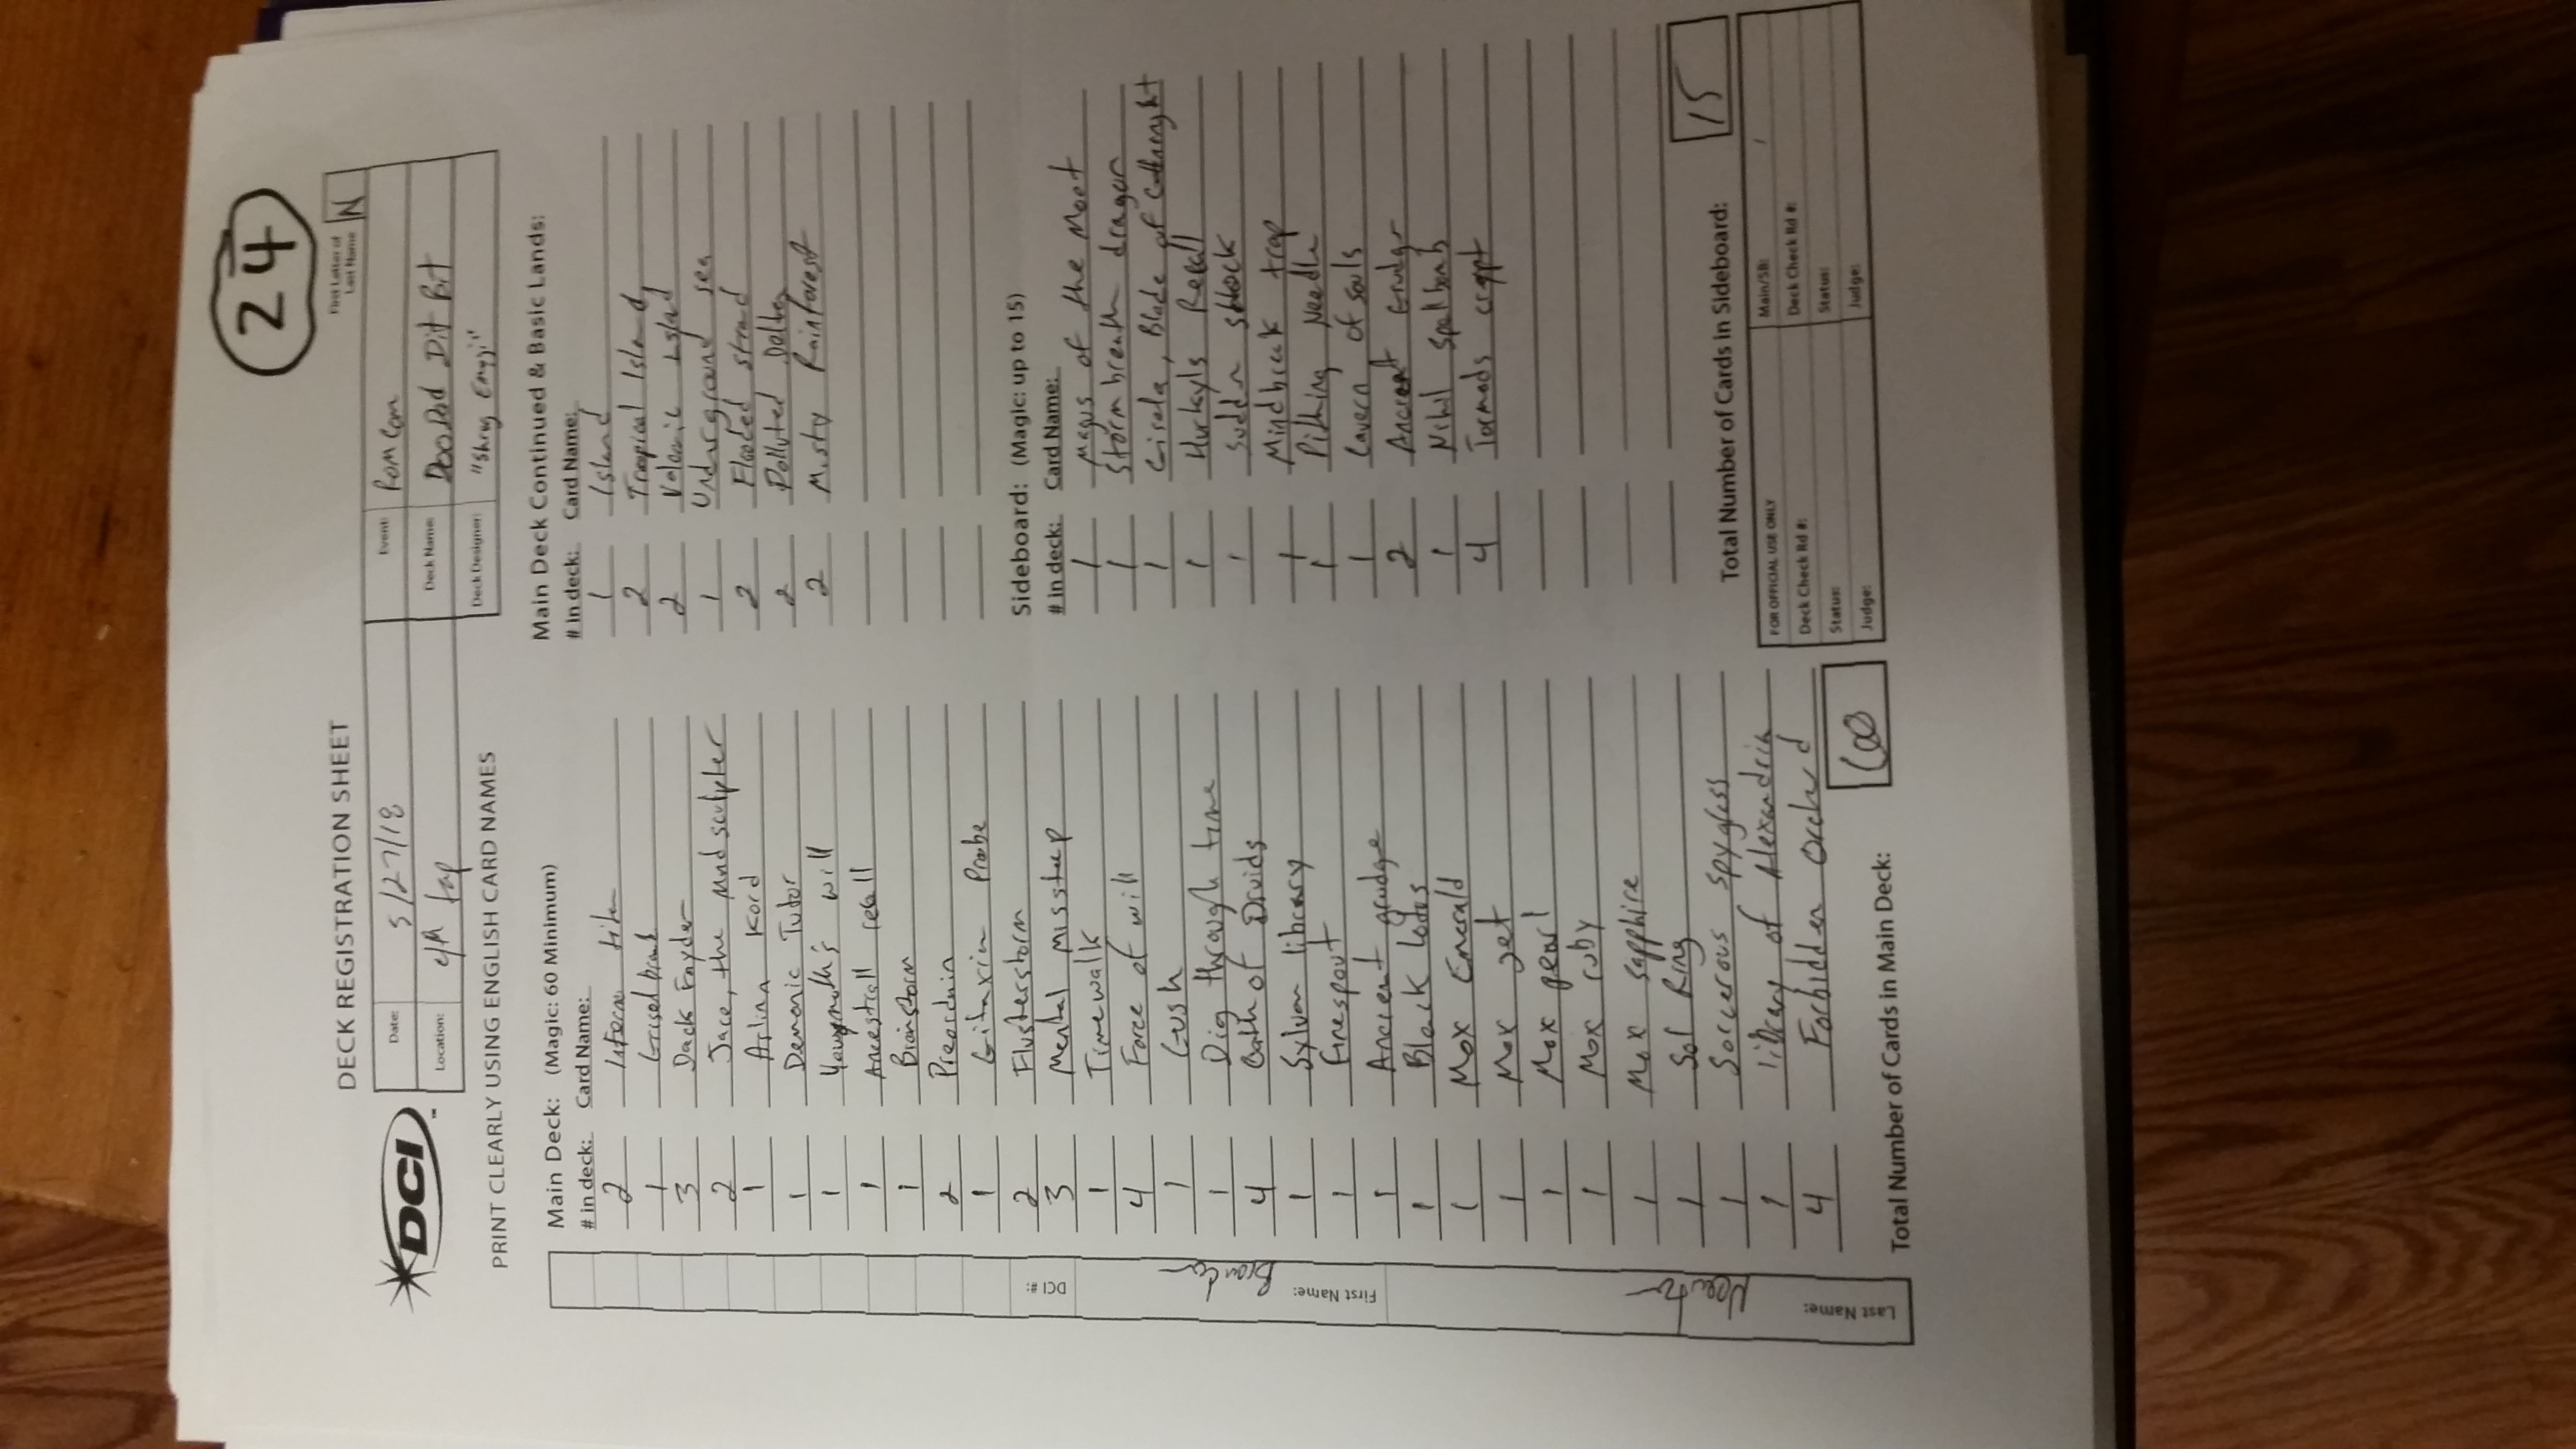 24
DECK REGISTRATION SHEET
First Letter of Last Name N
DCI
Date: 5/27/18
Event: Rom Com
Location: tap
Deck Name: Doo Dad Dit Bit
Deck Designer: "Shrug Emoji"
PRINT CLEARLY USING ENGLISH CARD NAMES
Main Deck: (Magic: 60 Minimum)
# in deck: Card Name:
2 Inferno titan
1 Griselbrand
3 Dack Fayden
2 Jace, the Mind sculpter
1 Arlinn Kord
1 Demonic Tutor
1 Yawgmoth's will
1 Ancestrall recall
1 Brainstorm
2 Preordain
1 Gitaxian Probe
2 Flusterstorm
3 Mental misstep
1 Timewalk
4 Force of will
1 Gush
1 Dig through time
4 Oath of Druids
1 Sylvan library
1 firespout
1 Ancient grudge
1 Black lotus
1 Mox Emerald
1 Mox jet
1 Mox pearl
1 Mox ruby
1 Mox sapphire
1 Sol Ring
1 Sorcerous spyglass
1 library of Alexandria
4 Forbidden Orchard
Total Number of Cards in Main Deck: 60
Main Deck Continued & Basic Lands:
# in deck: Card Name:
1 Island
2 Tropical Island
2 Volcanic Island
1 Underground sea
2 Flooded strand
2 Polluted Delta
2 Misty Rainforest
Sideboard: (Magic: up to 15)
# in deck: Card Name:
1 Magus of the Moat
1 Stormbreath dragon
1 Gisela, Blade of
1 Hurkyls Recall
1 Sudden shock
1 Mindbreak trap
1 Pithing Needle
1 Cavern of souls
2 Ancient Grudge
1 Nihil Spellbomb
4 Tormods crypt
Total Number of Cards in Sideboard: 15
FOR OFFICIAL USE ONLY
Main/SB: /
Deck Check Rd #:
Deck Check Rd #:
Status:
Status:
Judge:
Judge:
DCI #:
First Name: Brandon
Last Name: Newton